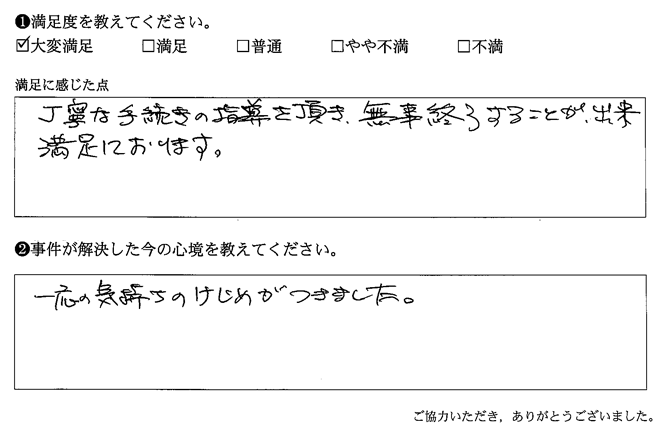 ❶満足度を教えてください。
☑大変満足 □満足 □普通 □やや不満 □不満
満足に感じた点
丁寧な手続きの指導を頂き、無事終了することが、出来
満足しております。
❷事件が解決した今の心境を教えてください。
一応の気持ちのけじめがつきました。
ご協力いただき，ありがとうございました。